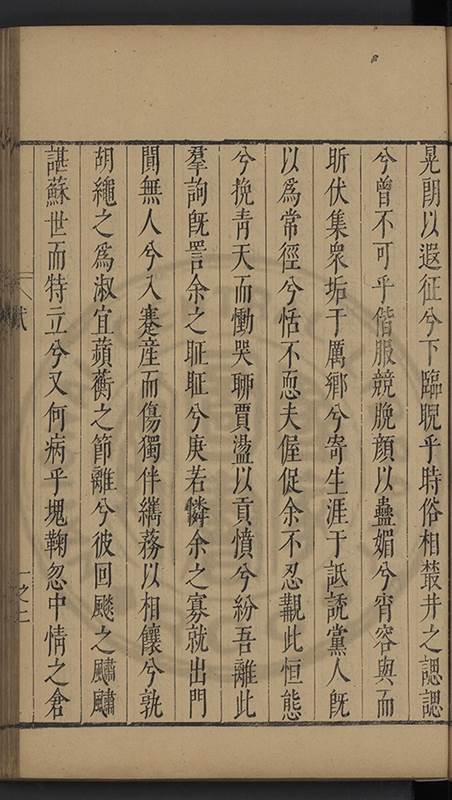 晃朗以遐征兮下臨睨乎時俗相叢井之諰諰
兮曾不可乎偕服競脕顏以蠱媚兮宵容與而
昕伏集眾垢于厲鄉兮寄生涯于詆誘黨人既
以為常徑兮恬不惡夫偓促余不忍覯此恒態
兮挽青天而慟哭聊賈盪以貢憤兮紛吾離此
羣詢既詈余之耻耻兮庚若憐余之寡就出門
閴無人兮入蹇產而傷獨伴纗務以相饟兮孰
胡繩之為淑宜蘋蘅之節離兮彼回飈之飅飅
諶蘇世而特立兮又何病乎塊鞠忽中情之倉